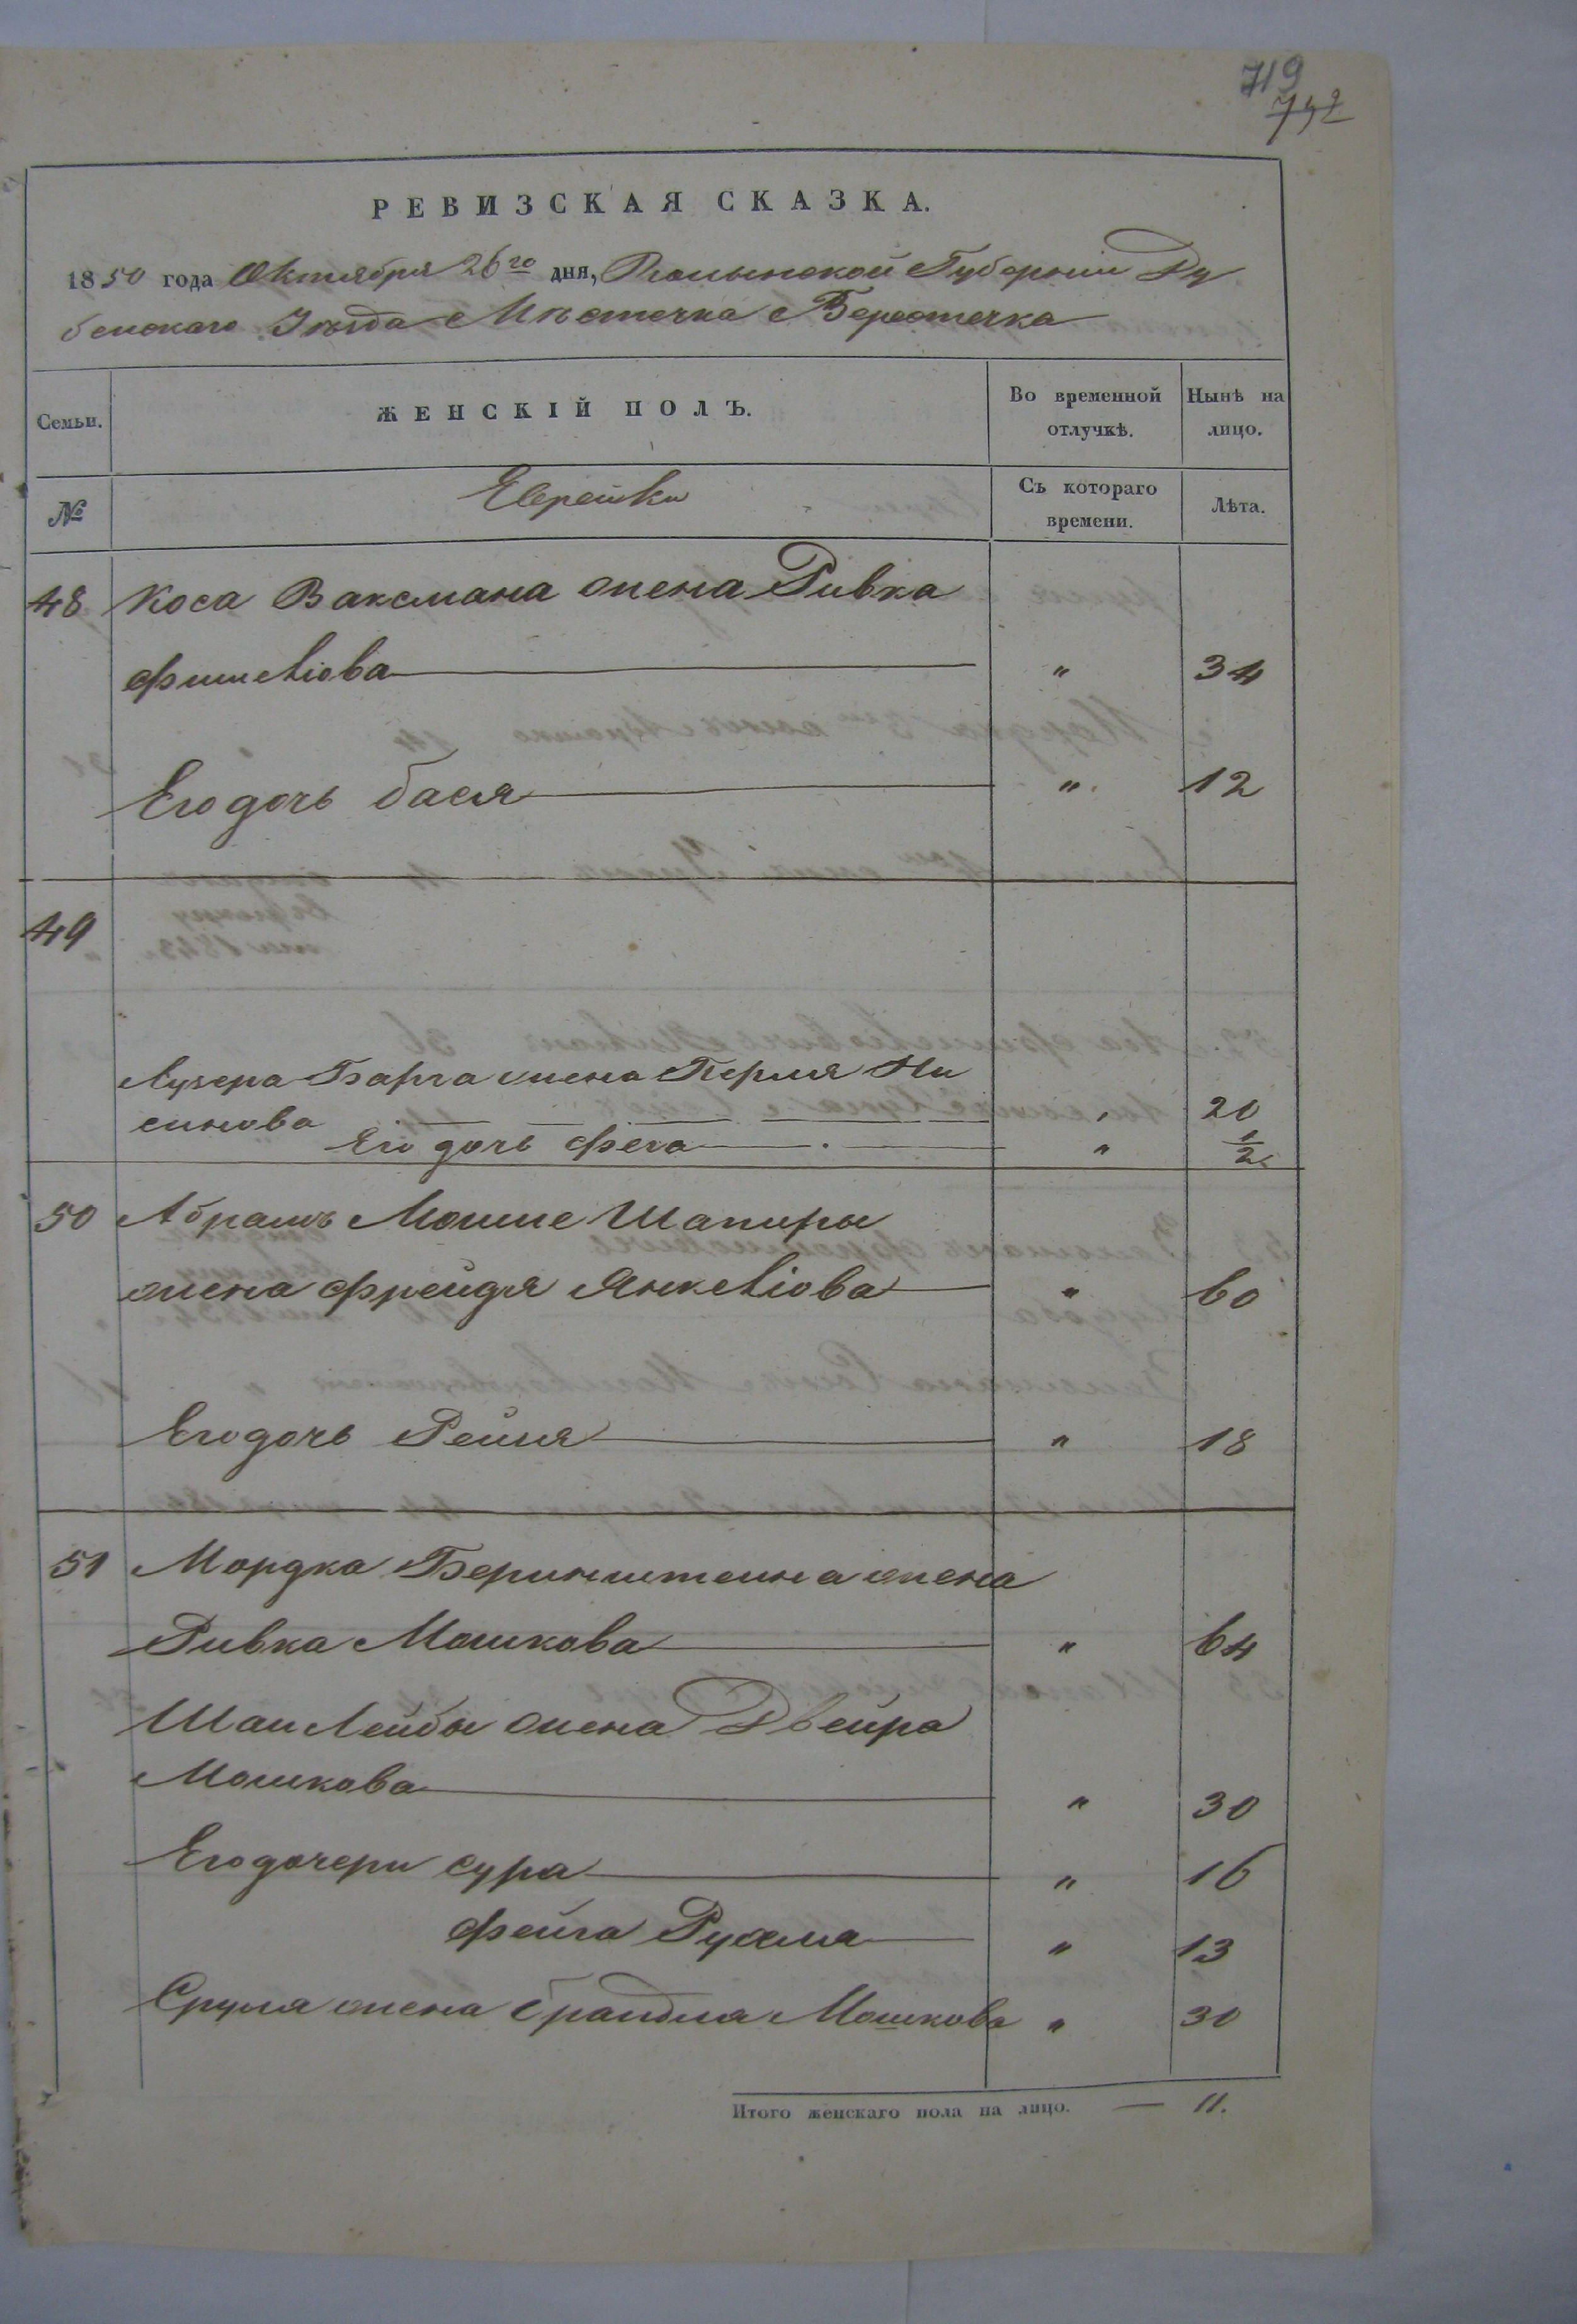 719
742
РЕВИЗСКАЯ СКАЗКА.
1850 года Октября 26го дня, Волынской Губерніи Ду
бенскаго Уезда Мѣстечка Берестечка
Семьи. ЖЕНСКІЙ ПОЛЪ. Во временной отлучкѣ. Нынѣ на лицо.
№ Еврейки Съ котораго времени. Лѣта.
48 Коса Ваксмана жена Ривка
Фишеліова " 34
Его дочь бася " 12
49
Лузера Барга жена Перля Ни
синова " 20
Его дочь Фега " 1/2
50 Абрамъ Мошме Шапиры
жена Фрейдя Янкеліова " 60
Его дочь Рейзя " 18
51 Мордка Беринштейна жена
Ривка Мошкова " 64
Шаи Лейбы жена Двейра
Мошкова " 30
Его дочери сура " 16
Фейга Рухля " 13
Сруля жена брандля Мошкова " 30
Итого женскаго пола на лицо. — 11.